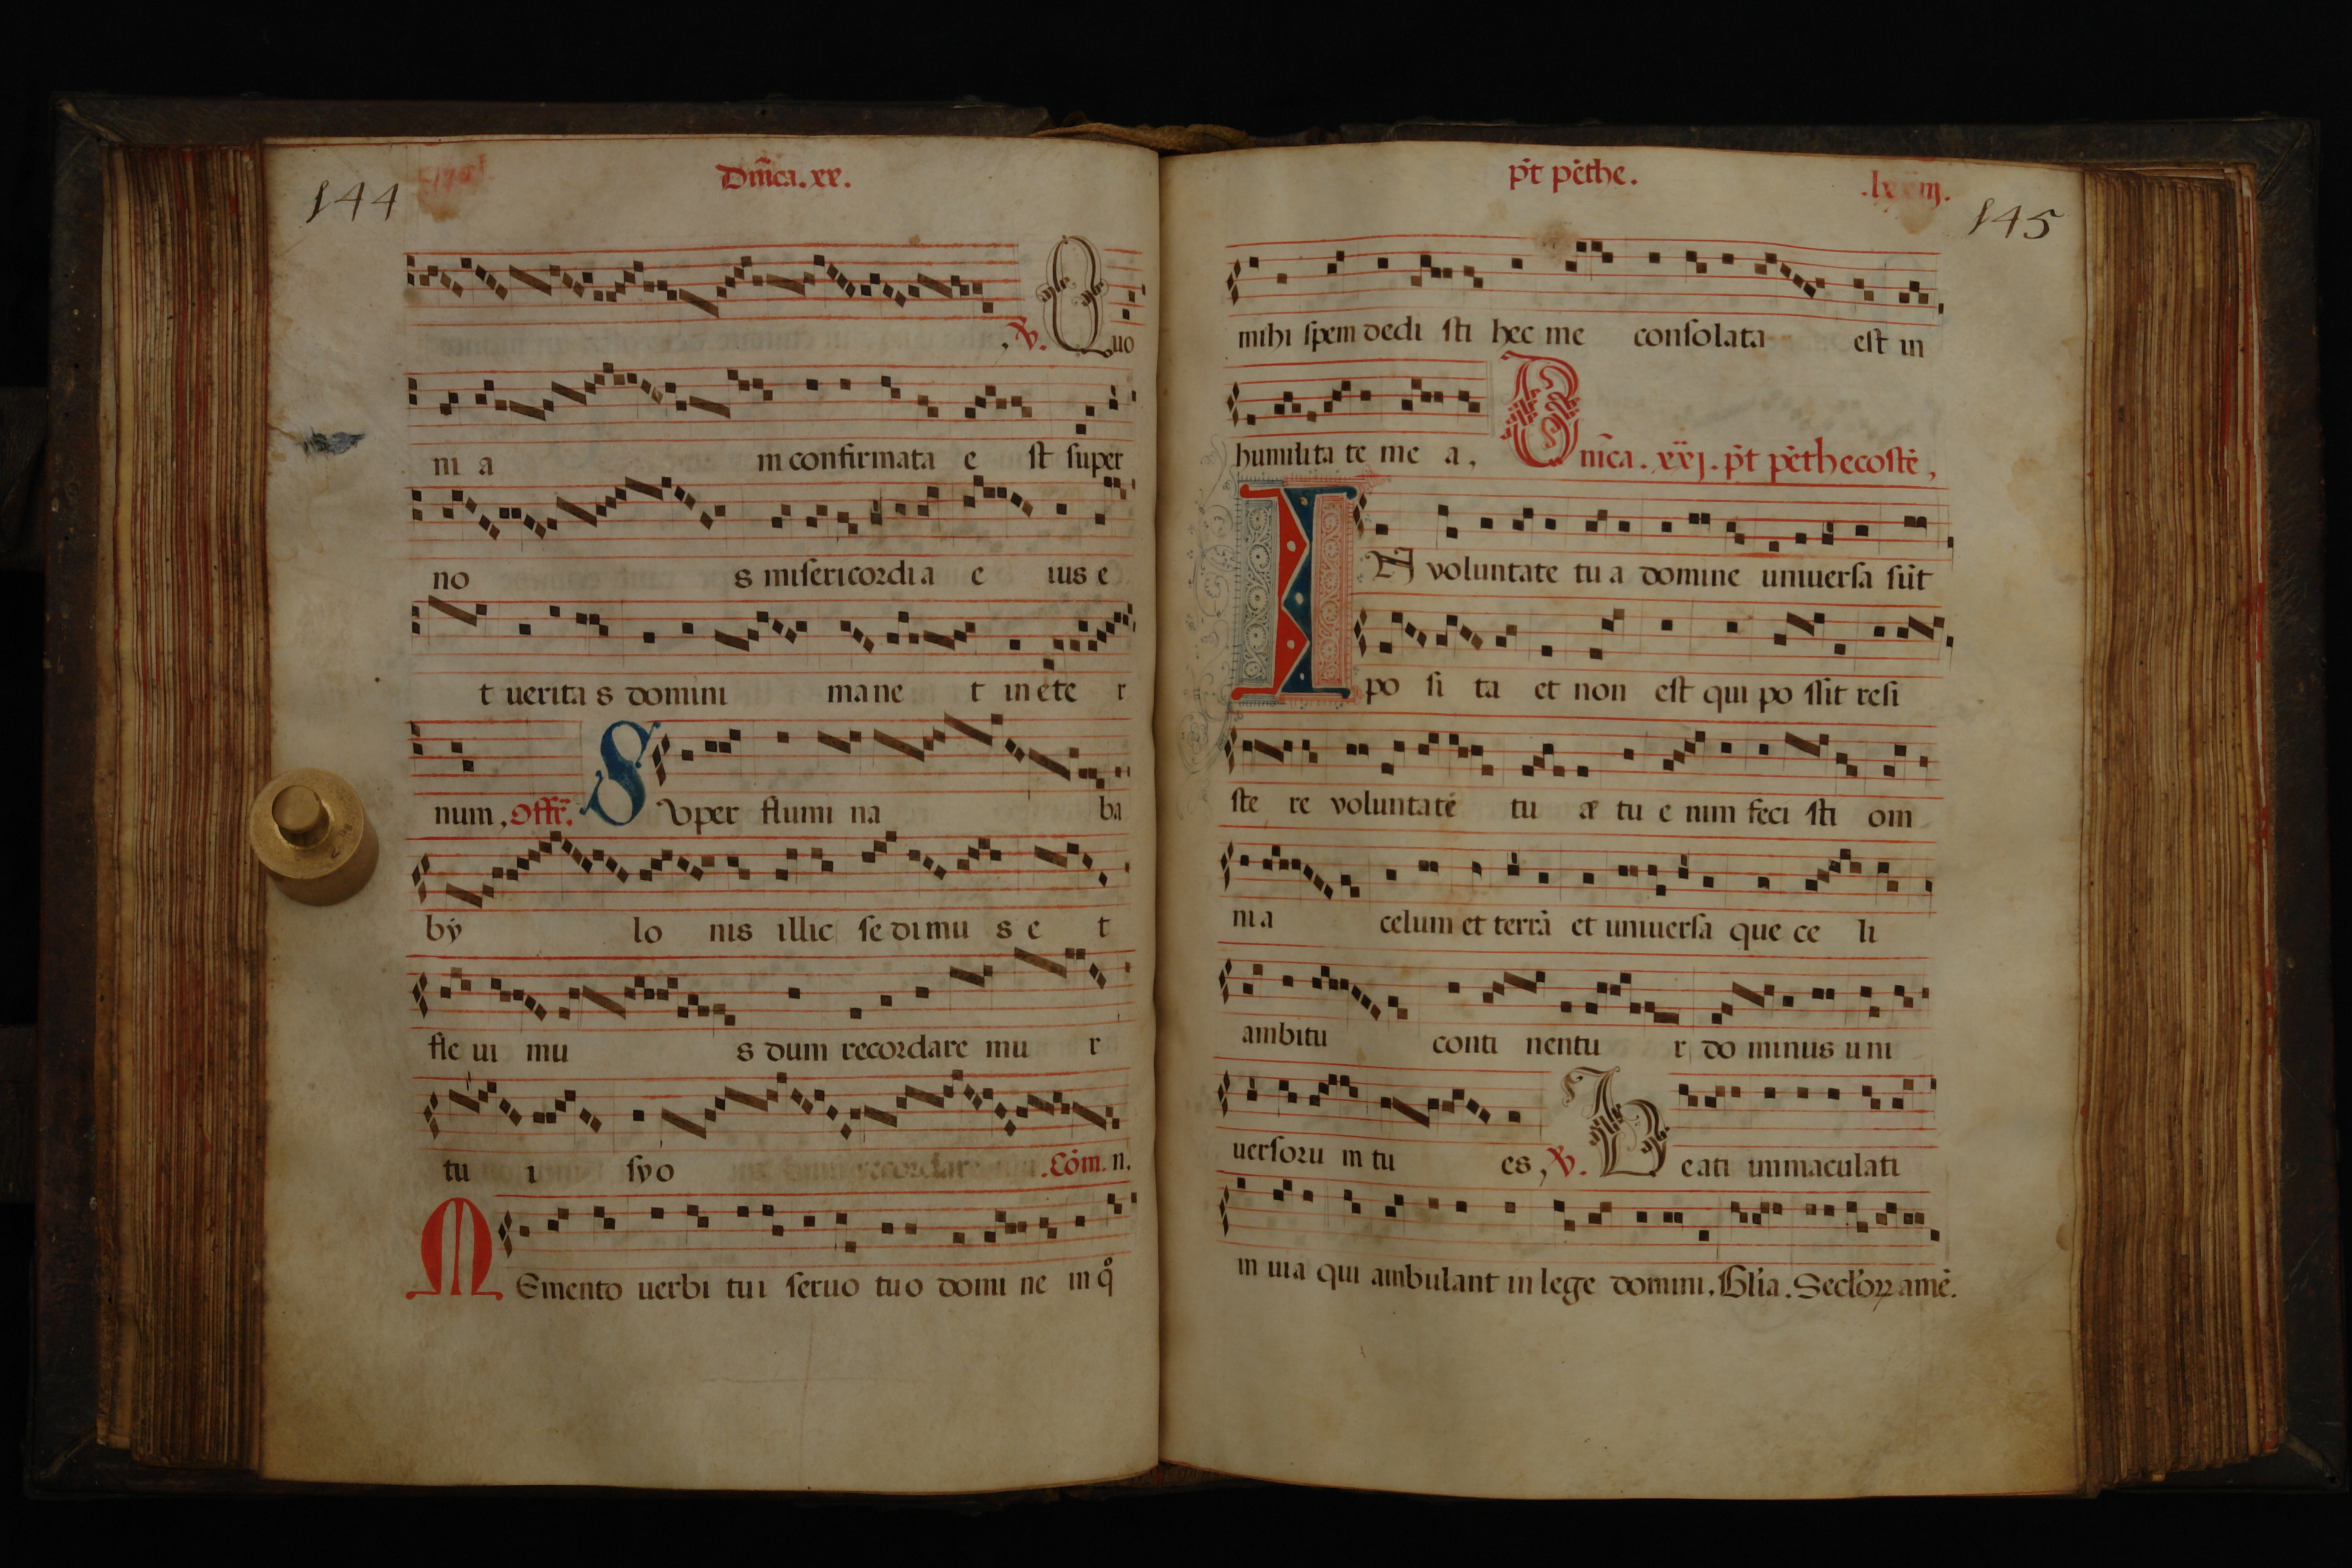 144
Dn̄ica. xx.
, ℣. Quo
ni a m confirmata e st super
no s misericordia e ius e
t uerita s domini mane t in ete r
num, Offr̄. SUper flumi na ba
bẏ lo nis illic se di mu s e t
fle ui mu s dum recordare mu r
tu i syo . Cōm. n.
MEmento uerbi tui seruo tuo domi ne in q̊
p̄t pēthe.
145
mihi spem dedi sti hec me consolata est in
humilita te me a,
Dn̄ica. xxj. p̄t pēthecostē,
IN voluntate tu a domine uniuersa sūt
po si ta et non est qui po ssit resi
ste re voluntatē tu æ tu e nim feci sti om
ni a celum et terrā et uniuersa que ce li
ambitu conti nentu r do minus uni
uersoru m tu es, ℣. Beati immaculati
in uia qui ambulant in lege domini. Gl̄ia. Secl̄oꝝ amē.